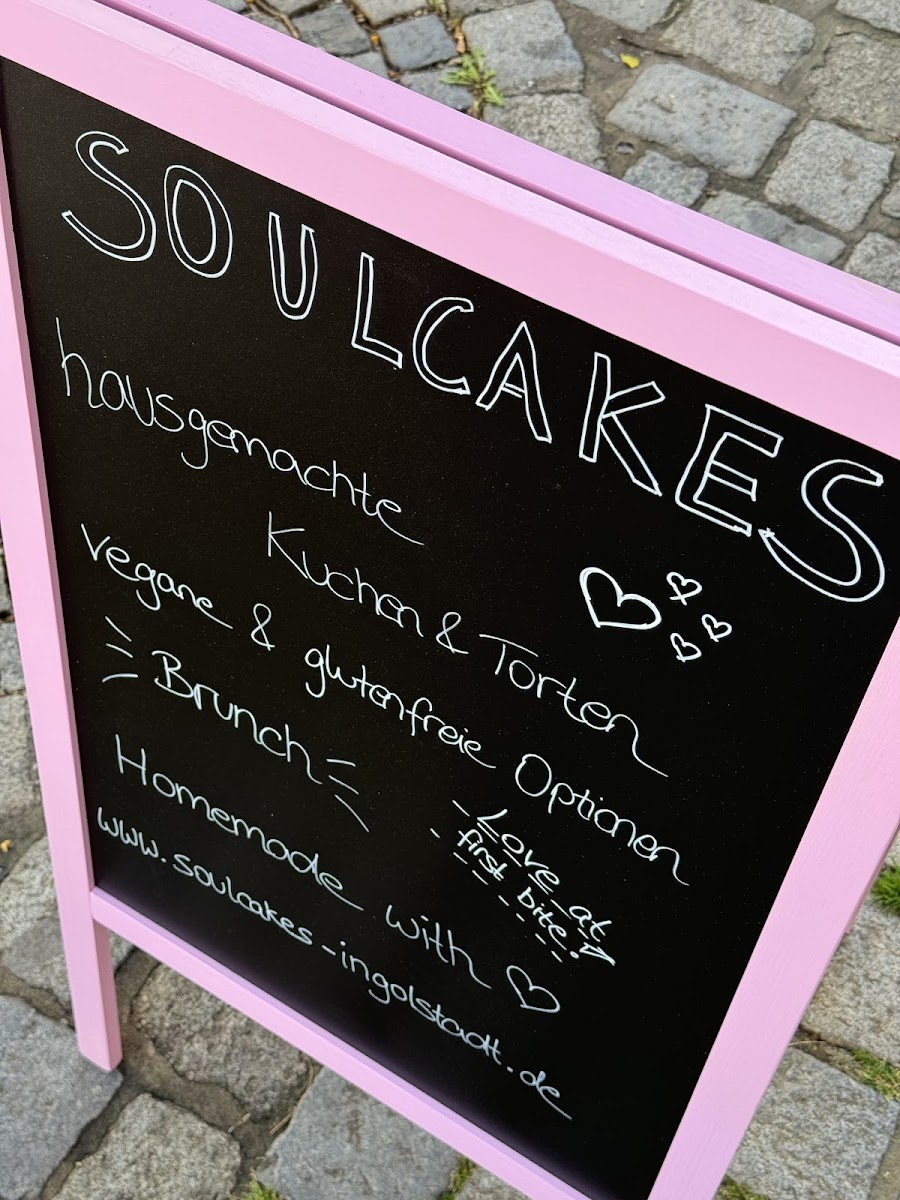 SOULCAKES
hausgemachte
Kuchen & Torten
vegane & glutenfreie Optionen
Brunch
Love at
first bite!
Homemade with ♡
www.soulcakes-ingolstadt.de